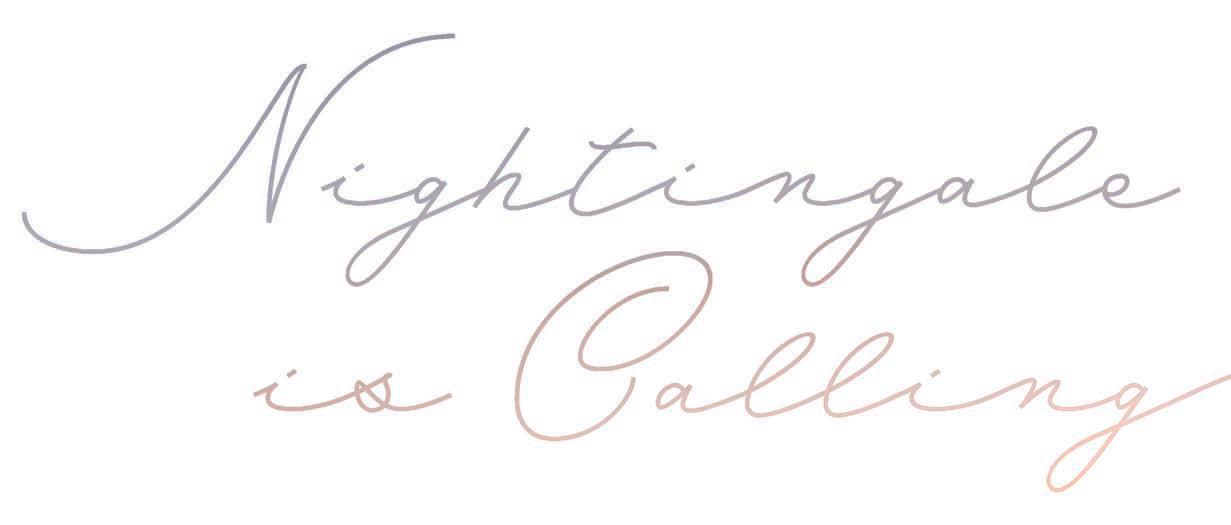 Nightingale
is Calling